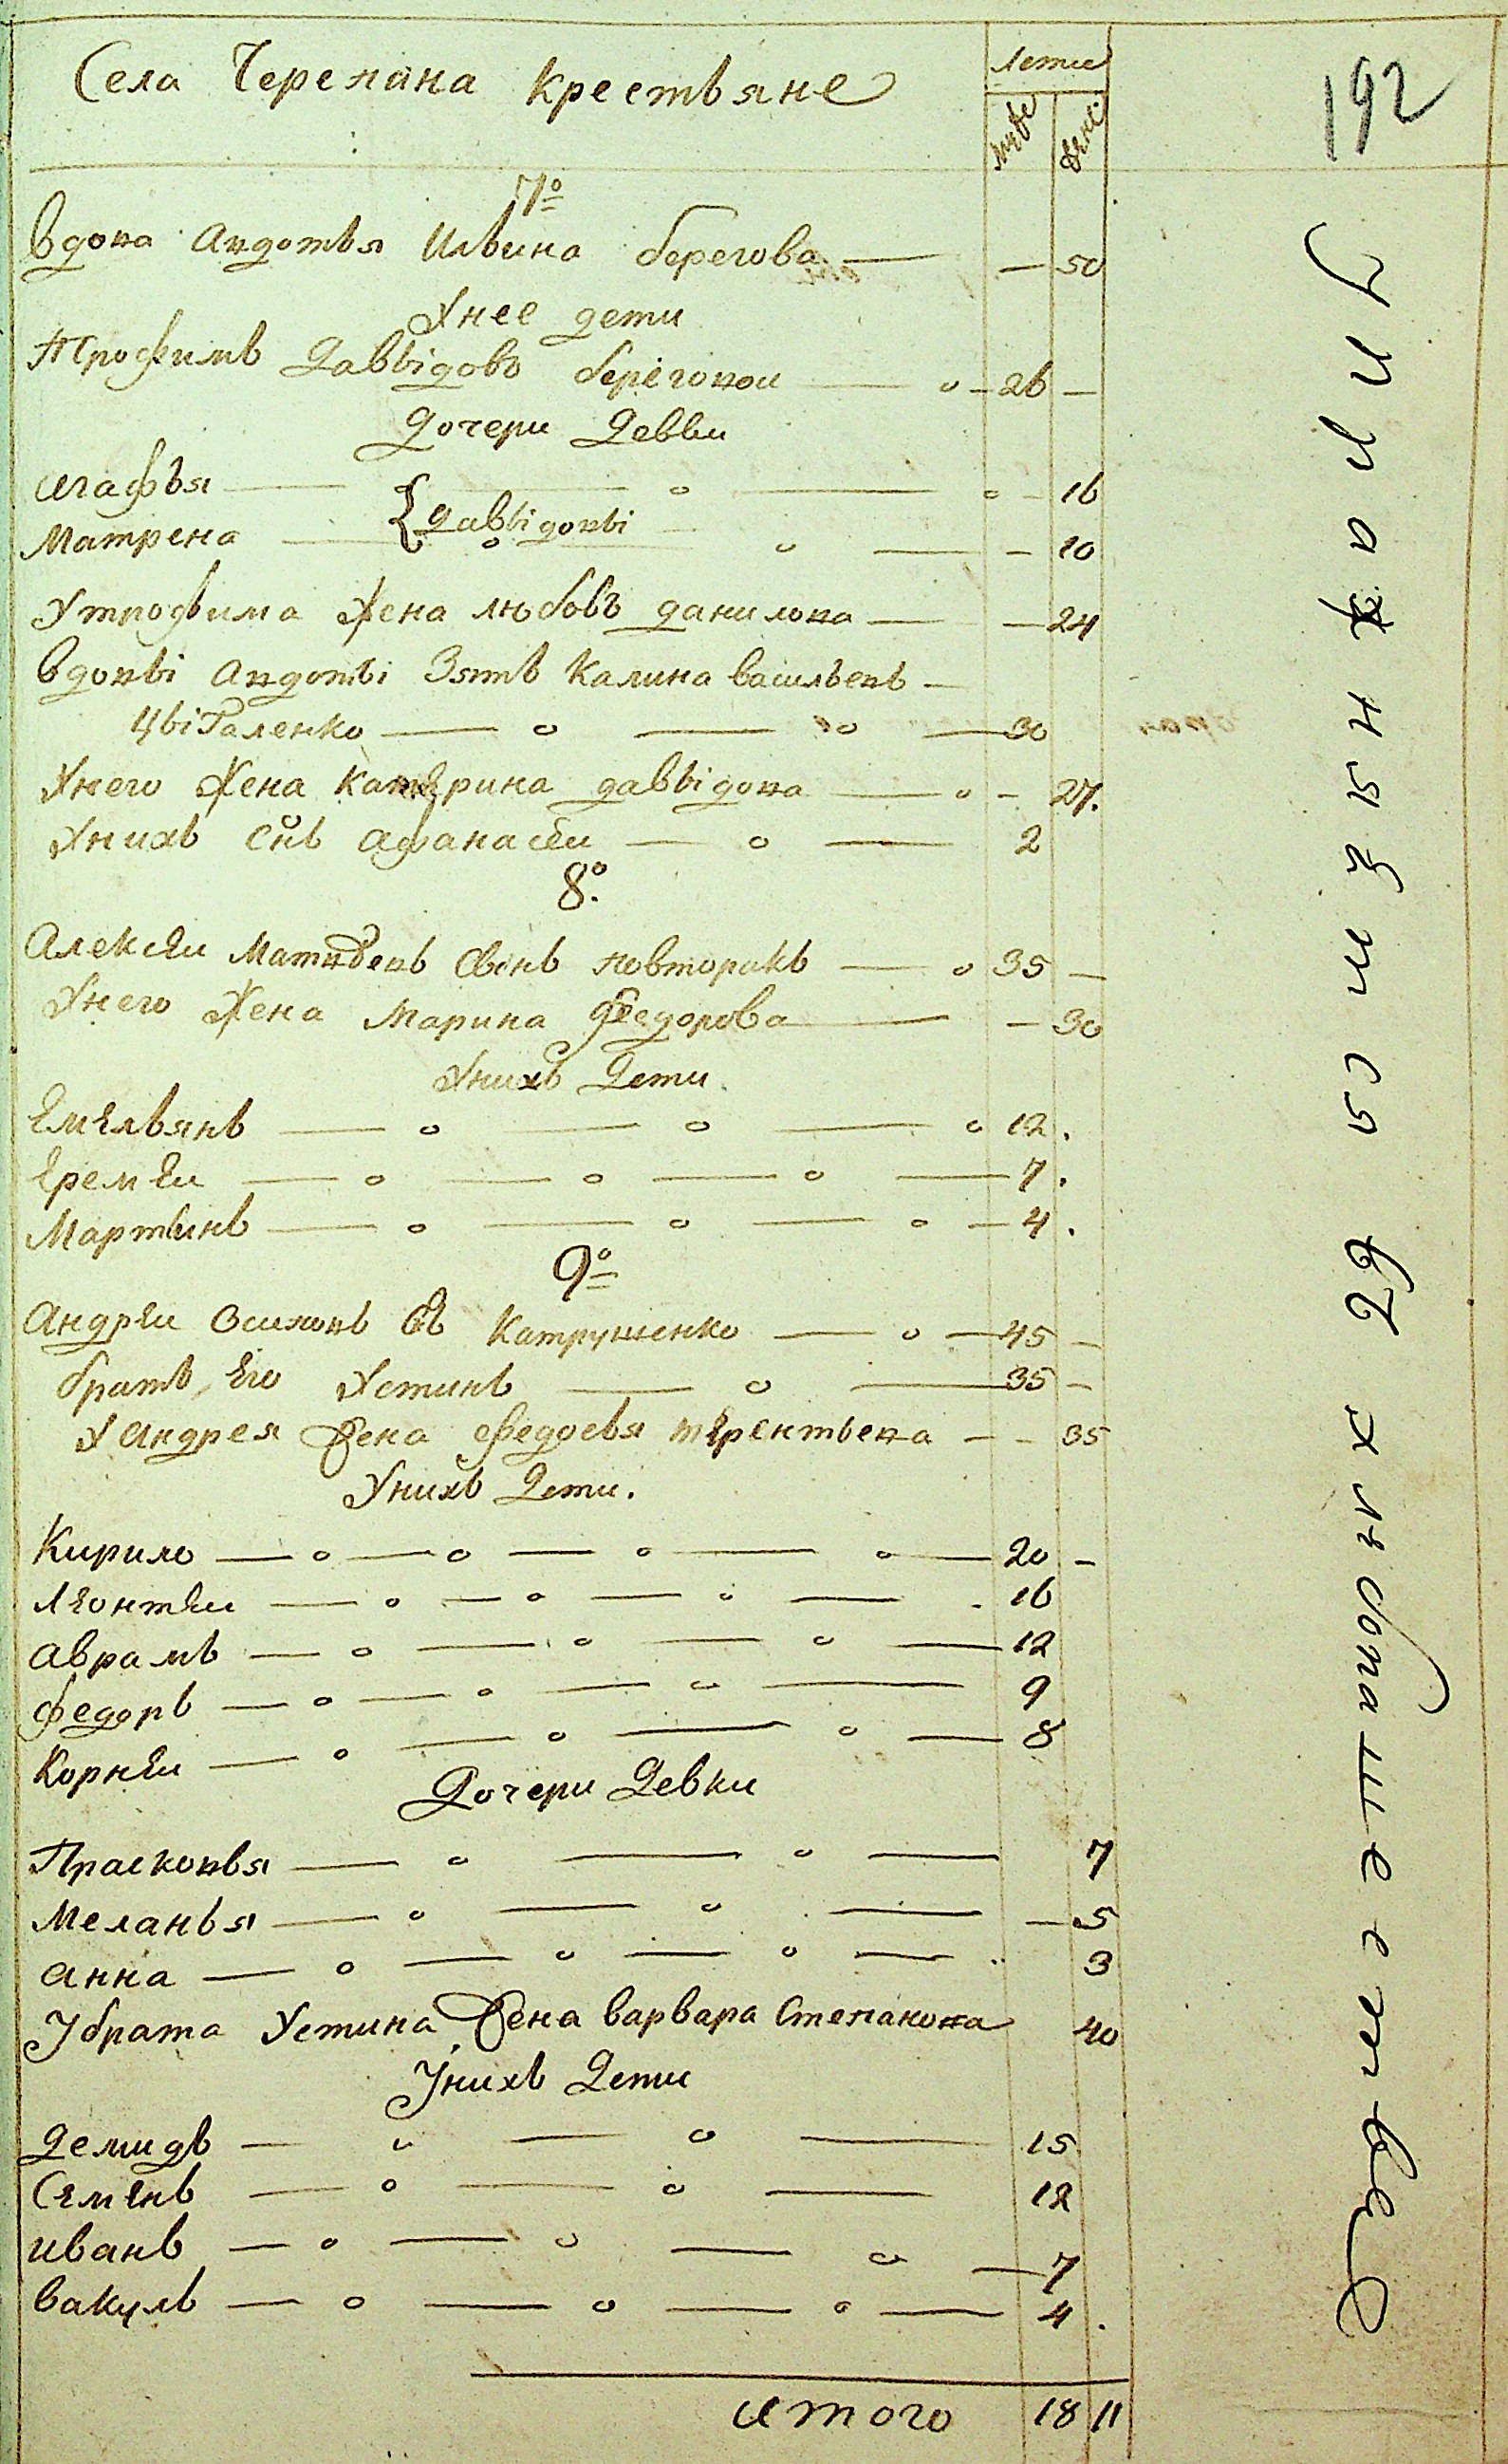 Села Черепана крестьяне
лета
муж жен:
192
7º
вдова Авдотья Ильина берегова — — 50
У нее дети
Трофимъ Давыдовъ береговои — 26 —
Дочери Девки
Агафья — 16
{давыдовы
Матрена — 10
У трофима жена любовь данилова — 24
вдовы Авдотьи Зять Калина васильевъ —
Цыгаленко — 30
У него жена катерина давыдова — 27.
У нихъ снъ афанасеи — 2
8º.
Алексеи Матвеевъ сынъ повторакъ — 35 —
У него жена Марина феедорова — 30
У нихъ Дети
Емельянъ — 12.
Еремеи — 7.
Мартинъ — 4.
9º
Андреи Осиповъ съ Катрушенко — 45 —
братъ его Устинъ — 35 —
У Андрея жена федосья терентьева — 35
У нихъ Дети.
Кирило — 20 —
Леонтеи — 16
Аврамъ — 12
федоръ — 9
Корнеи — 8
Дочери Девки
Прасковья — 7
Меланья — 5
Анна — 3
У брата Устина жена варвара Степанова 40
У нихъ Дети
Демидъ — 15
Семенъ — 12
иванъ — 7
вакулъ — 4.
итого 18 11